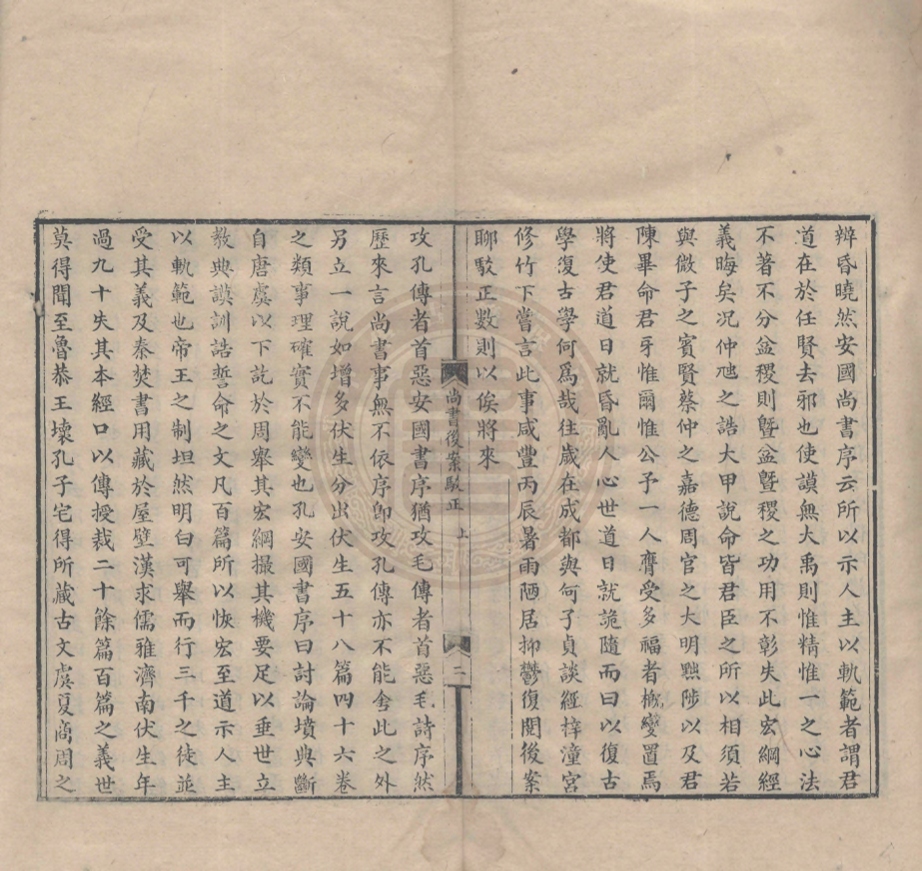 辨昏曉然安國尚書序云所以示人主以軌範者謂君
道在於任賢去邪也使謨無大禹則惟精惟一之心法
不著不分益稷則曁益曁稷之功用不彰失此宏綱經
義晦矣況仲虺之誥大甲說命皆君臣之所以相須若
與微子之賓賢蔡仲之嘉德周官之大明黜陟以及君
陳畢命君牙惟爾惟公予一人膺受多福者概變置焉
將使君道日就昏亂人心世道日就詭隨而曰以復古
學復古學何爲哉往歲在成都與何子貞談經梓潼宮
修竹下嘗言此事咸豐丙辰暑雨陋居抑鬱復閱後案
聊駁正數則以俟將來
尚書後案駁正 上 二
攻孔傳者首惡安國書序猶攻毛傳者首惡毛詩序然
歷來言尚書事無不依序卽攻孔傳亦不能舍此之外
另立一說如增多伏生分出伏生五十八篇四十六卷
之類事理確實不能變也孔安國書序曰討論墳典斷
自唐虞以下訖於周舉其宏綱撮其機要足以垂世立
教典謨訓誥誓命之文凡百篇所以恢宏至道示人主
以軌範也帝王之制坦然明白可舉而行三千之徒並
受其義及秦焚書用藏於屋壁漢求儒雅濟南伏生年
過九十失其本經口以傳授裁二十餘篇百篇之義世
莫得聞至魯恭王壞孔子宅得所藏古文虞夏商周之